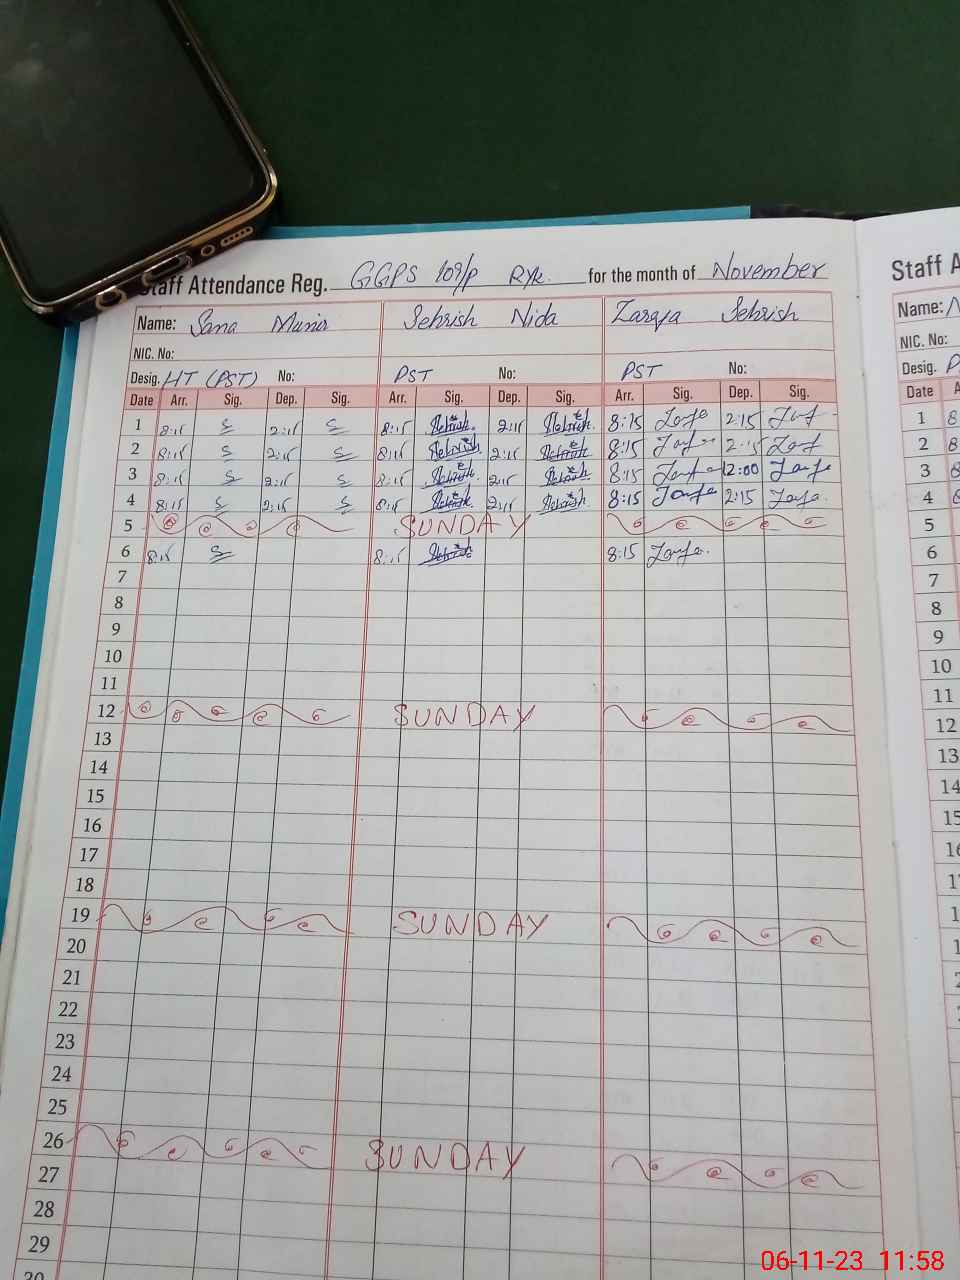 Staff Attendance Reg. GGPS 109/P RYK. for the month of November
Staff A
Name: Sana Munir Sehrish Nida Zarqa Sehrish
Name:
NIC. No:
NIC. No:
Desig. HT (PST) No: PST No: PST No:
Desig. P
Date Arr. Sig. Dep. Sig. Arr. Sig. Dep. Sig. Arr. Sig. Dep. Sig.
Date A
1 8:15 2:15 8:15 Sehrish 2:15 Sehrish 8:15 2:15
2 8:15 2:15 8:15 Sehrish 2:15 Sehrish 8:15 2:15
3 8:15 2:15 8:15 Sehrish 2:15 Sehrish 8:15 12:00
4 8:15 2:15 8:15 Sehrish 2:15 Sehrish 8:15 2:15
5 SUNDAY
6 8:15 8:15 Sehrish 8:15
7
8
9
10
11
12 SUNDAY
13
14
15
16
17
18
19 SUNDAY
20
21
22
23
24
25
26 SUNDAY
27
28
29
30
1 8
2 8
3 8
4 8
5
6
7
8
9
10
11
12
13
14
15
16
06-11-23 11:58